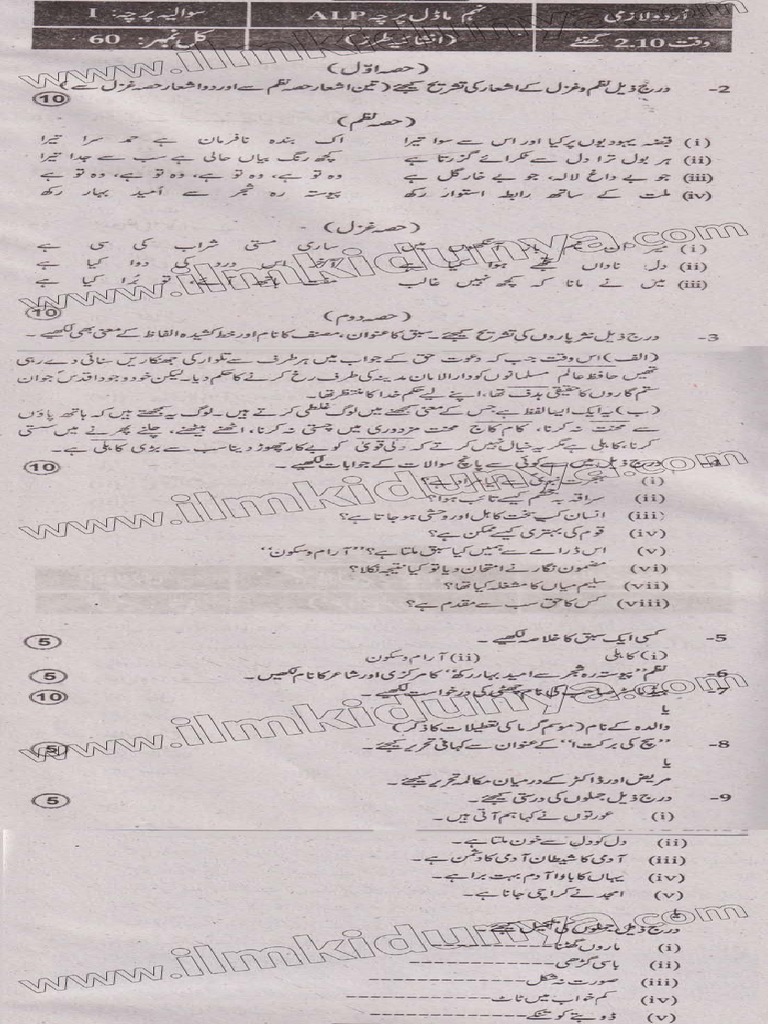 اردو لازمی نہم ماڈل پرچہ ALP سوالیہ پرچہ: I
وقت 2.10 گھنٹے (انشائیہ طرز) کل نمبر: 60
(حصہ اوّل)
2- درج ذیل نظم و غزل کے اشعار کی تشریح کیجئے (تین اشعار حصہ نظم سے اور دو اشعار حصہ غزل سے) 10
(حصہ نظم)
(i) قبضہ یہودیوں پر کیا اور اس سے سوا تیرا اک بندہ نافرمان ہے حمد سرا تیرا
(ii) ہر بول ترا دل سے ٹکرائے گزرتا ہے کچھ رنگ بیاں حالی ہے سب سے جدا تیرا
(iii) جو بے داغ لالہ، جو بے خار گل ہے وہ تو ہے، وہ تو ہے، وہ تو ہے
(iv) ملت کے ساتھ رابطہ استوار رکھ پیوستہ رہ شجر سے اُمید بہار رکھ
(حصہ غزل)
(i) میر ان نیم ساری مستی شراب کی سی ہے
(ii) دلِ ناداں تجھے ہوا کیا ہے آخر اس درد کی دوا کیا ہے
(iii) میں نے مانا کہ کچھ نہیں غالب تو بُرا کیا ہے
(حصہ دوم) 10
3- درج ذیل نثرپاروں کی تشریح کیجئے۔ سبق کا عنوان، مصنف کا نام اور خط کشیدہ الفاظ کے معنی بھی لکھیے۔
(الف) اس وقت جب کہ دعوت حق کے جواب میں ہر طرف سے تلوار کی جھنکاریں سنائی دے رہی
تھیں حافظ عالم مسلمانوں کو دارالامان مدینہ کی طرف رخ کرنے کا حکم دیا۔ لیکن خود وجود اقدس جو ان
ستم گاروں کا حقیقی ہدف تھا، اپنے لیے حکم خدا کا منتظر تھا۔
(ب) یہ ایک ایسا لفظ ہے جس کے معنی سمجھنے میں لوگ غلطی کرتے ہیں۔ لوگ یہ سمجھتے ہیں کہ ہاتھ پاؤں
سے محنت نہ کرنا، کام کاج محنت مزدوری میں چستی نہ کرنا، اٹھنے بیٹھنے، چلنے پھرنے میں سستی
کرنا، کاہلی ہے مگر یہ خیال نہیں کرتے کہ دلی قویٰ کو بے کار چھوڑ دینا سب سے بڑی کاہلی ہے۔
4- درج ذیل میں سے کوئی سے پانچ سوالات کے جوابات لکھیے۔ 10
(i) ہجرت
(ii) سراقہ بن جعشم کیسے تائب ہوا؟
(iii) انسان کب سخت کاہل اور وحشی ہو جاتا ہے؟
(iv) قوم کی بہتری کیسے ممکن ہے؟
(v) اس ڈرامے سے ہمیں کیا سبق ملتا ہے؟ "آرام و سکون"
(vi) مضمون نگار نے امتحان دیا تو کیا نتیجہ نکلا؟
(vii) سلیم میاں کا مشغلہ کیا تھا؟
(viii) کس کا حق سب سے مقدم ہے؟
5- کسی ایک سبق کا خلاصہ لکھیے۔ 5
(i) کاہلی (ii) آرام و سکون
6- نظم "پیوستہ رہ شجر سے امید بہار رکھ" کا مرکزی اور شاعر کا نام لکھیں۔ 5
7- ہیڈ ماسٹر صاحب کے نام چھٹی کی درخواست لکھیے۔ 10
یا
والدہ کے نام (موسم گرما کی تعطیلات کا ذکر)
8- "سچ کی برکت" کے عنوان سے کہانی تحریر کیجئے۔ 5
یا
مریض اور ڈاکٹر کے درمیان مکالمہ تحریر کیجئے۔
9- درج ذیل جملوں کی درستی کیجئے۔ 5
(i) عورتوں نے کہا ہم آتی ہیں۔
(ii) دل کو دل سے خون ملتا ہے۔
(iii) آدمی کا شیطان آدمی کا دشمن ہے۔
(iv) یہاں کا باوا آدم بہت برا ہے۔
(v) امجد نے کراچی جانا ہے۔
یا
درج ذیل جملوں کی تکمیل کیجئے۔
(i) ماروں گھٹنا
(ii) باسی کڑھی
(iii) صورت نہ شکل
(iv) کم خواب میں ٹاٹ
(v) ڈوبتے کو تنکے
www.ilmkidunya.com
www.ilmkidunya.com
www.ilmkidunya.com
www.ilmkidunya.com
www.ilmkidunya.com